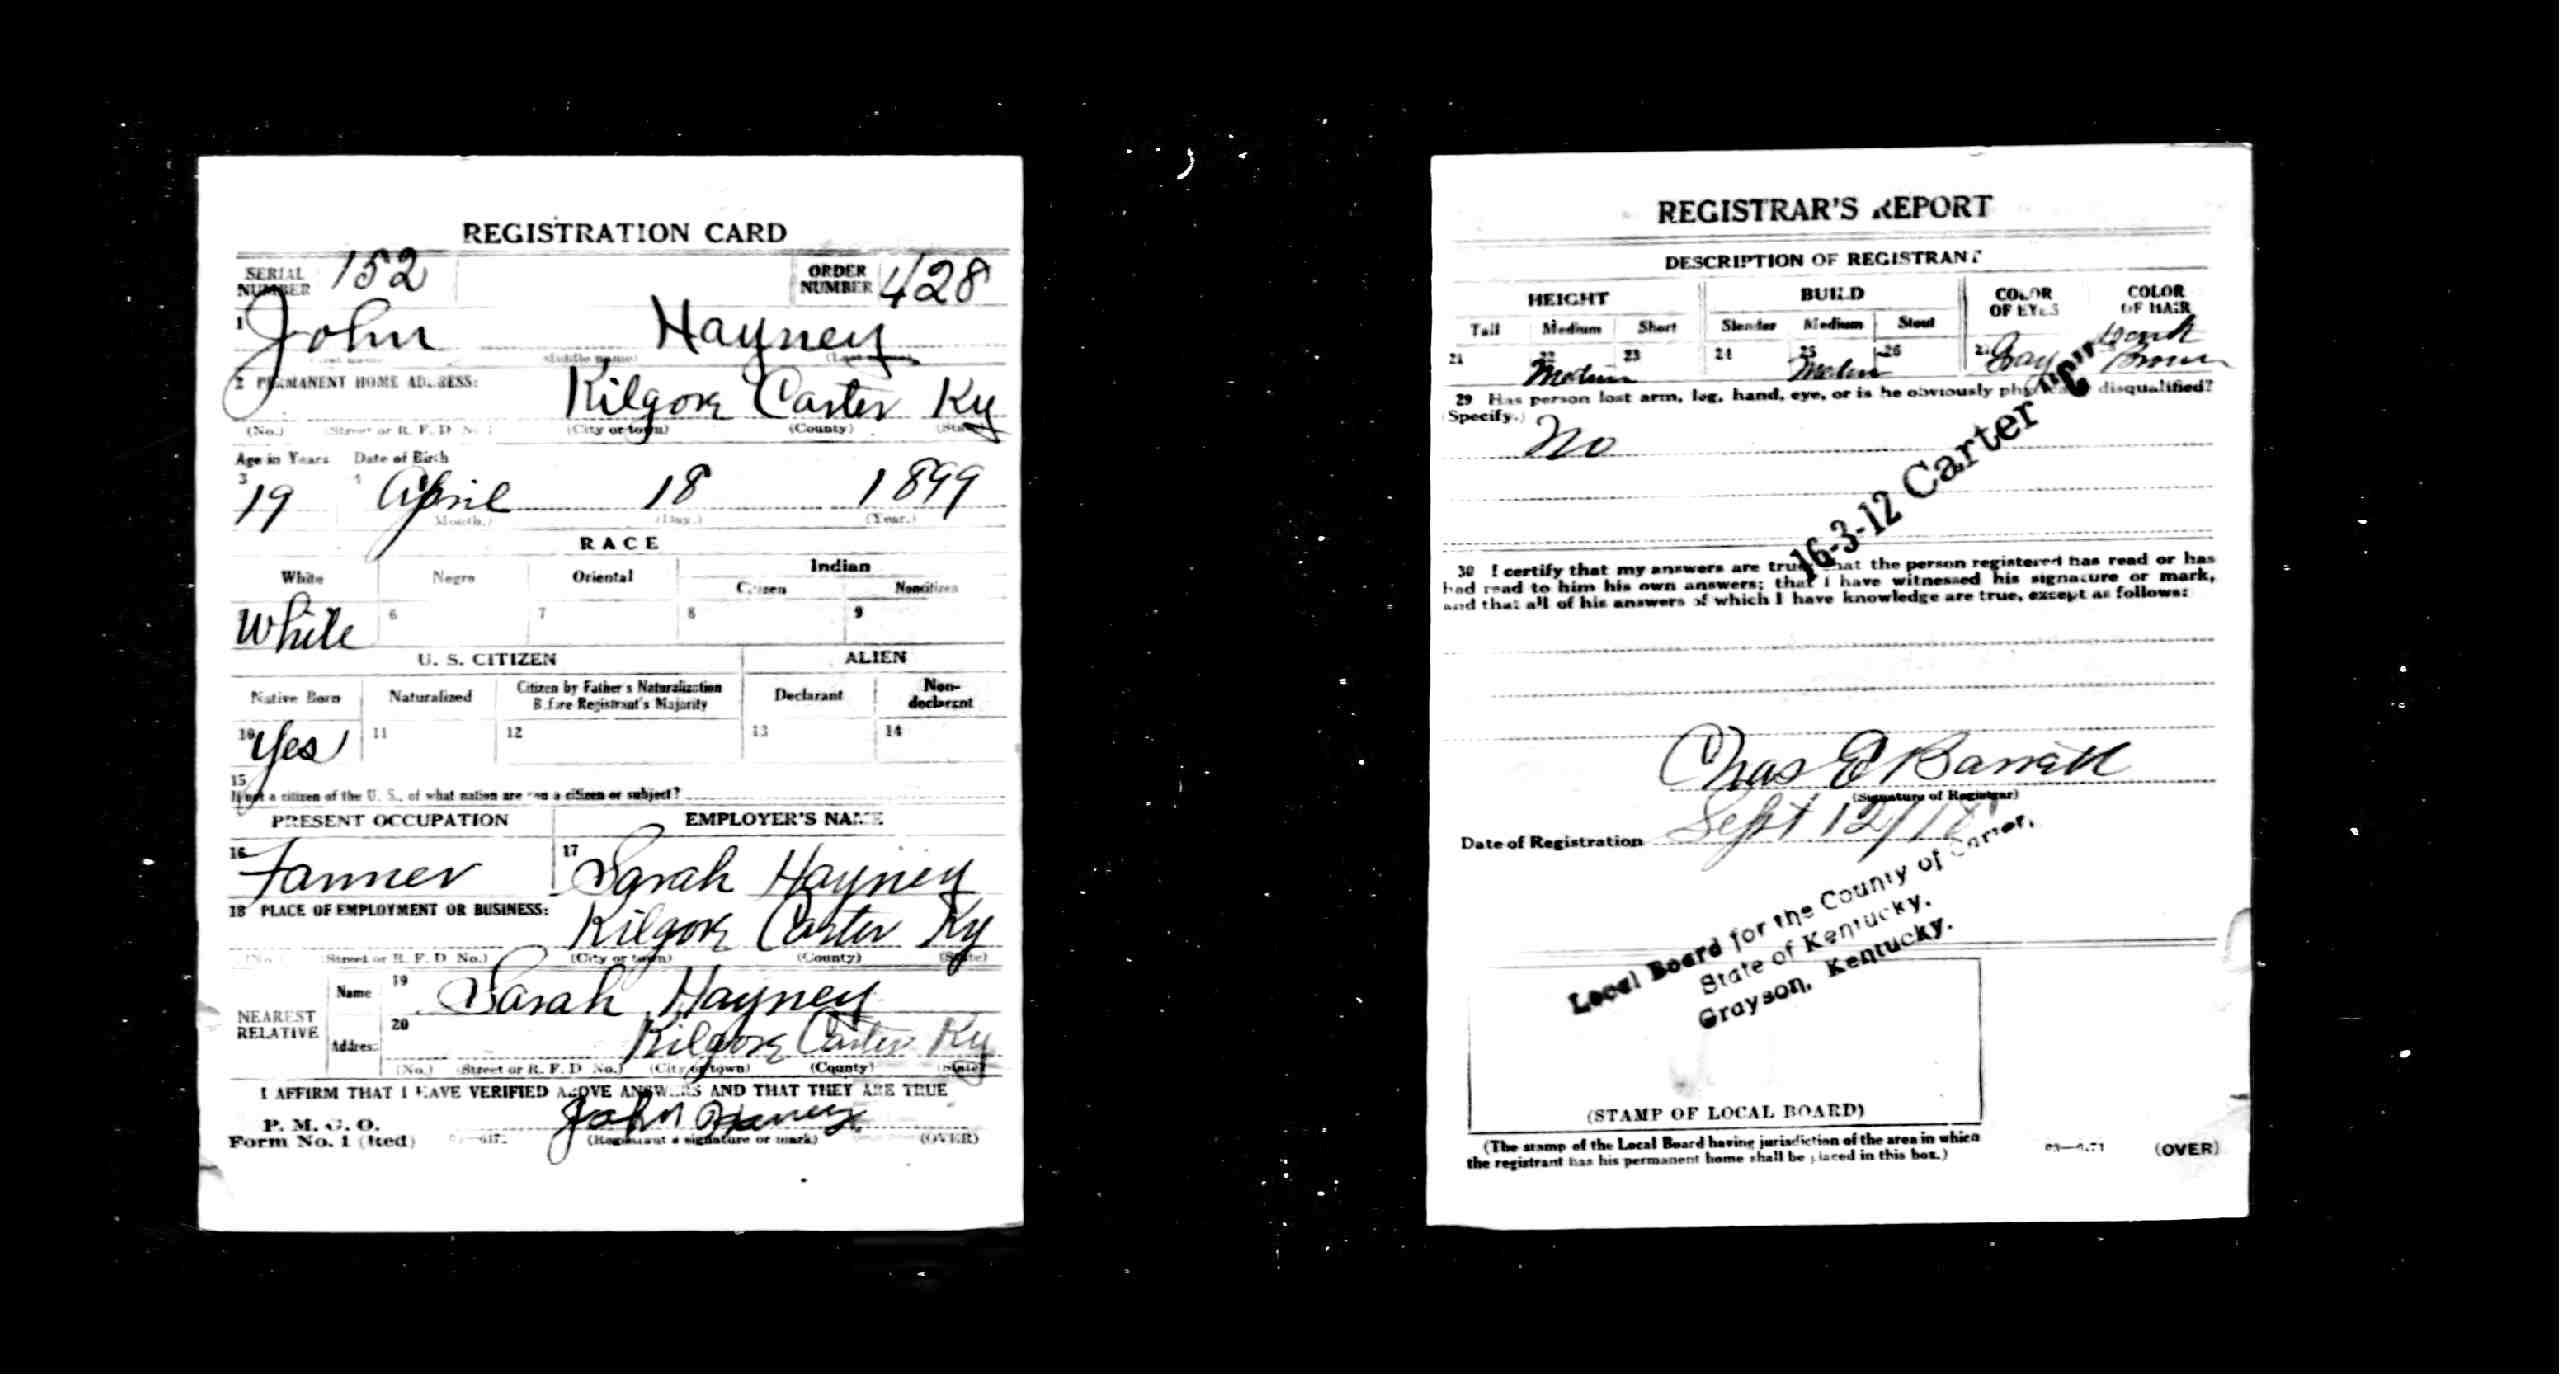 REGISTRATION CARD
SERIAL NUMBER 152 ORDER NUMBER 428
1 John Hayney
(Middle name) (Last name)
2 PERMANENT HOME ADDRESS:
Kilgore Carter Ky
(No.) (Street or R. F. D. No.) (City or town) (County) (State)
Age in Years Date of Birth
3 19 4 April 18 1899
(Month.) (Day.) (Year.)
RACE
White Negro Oriental Indian
Citizen Noncitizen
White 6 7 8 9
U. S. CITIZEN ALIEN
Native Born Naturalized Citizen by Father's Naturalization Before Registrant's Majority Declarant Non-declarant
10 Yes 11 12 13 14
15
If not a citizen of the U. S., of what nation are you a citizen or subject?
PRESENT OCCUPATION EMPLOYER'S NAME
16 Farmer 17 Sarah Hayney
18 PLACE OF EMPLOYMENT OR BUSINESS:
Kilgore Carter Ky
(No.) (Street or R. F. D. No.) (City or town) (County) (State)
NEAREST RELATIVE
Name 19 Sarah Hayney
Address 20 Kilgore Carter Ky
(No.) (Street or R. F. D. No.) (City or town) (County) (State)
I AFFIRM THAT I HAVE VERIFIED ABOVE ANSWERS AND THAT THEY ARE TRUE
P. M. G. O.
Form No. 1 (Red) John
(Registrant's signature or mark) (OVER)
REGISTRAR'S REPORT
DESCRIPTION OF REGISTRANT
HEIGHT BUILD COLOR OF EYES COLOR OF HAIR
Tall Medium Short Slender Medium Stout
21 22 23 24 25 26 Brown
29 Has person lost arm, leg, hand, eye, or is he obviously physically disqualified?
(Specify.)
No
16-3-12 Carter
30 I certify that my answers are true; that the person registered has read or has
had read to him his own answers; that I have witnessed his signature or mark,
and that all of his answers of which I have knowledge are true, except as follows:
Chas E Barrett
(Signature of Registrar)
Date of Registration Sept 12/18
Local Board for the County of Carter,
State of Kentucky,
Grayson, Kentucky.
(STAMP OF LOCAL BOARD)
(The stamp of the Local Board having jurisdiction of the area in which
the registrant has his permanent home shall be placed in this box.)
(OVER)